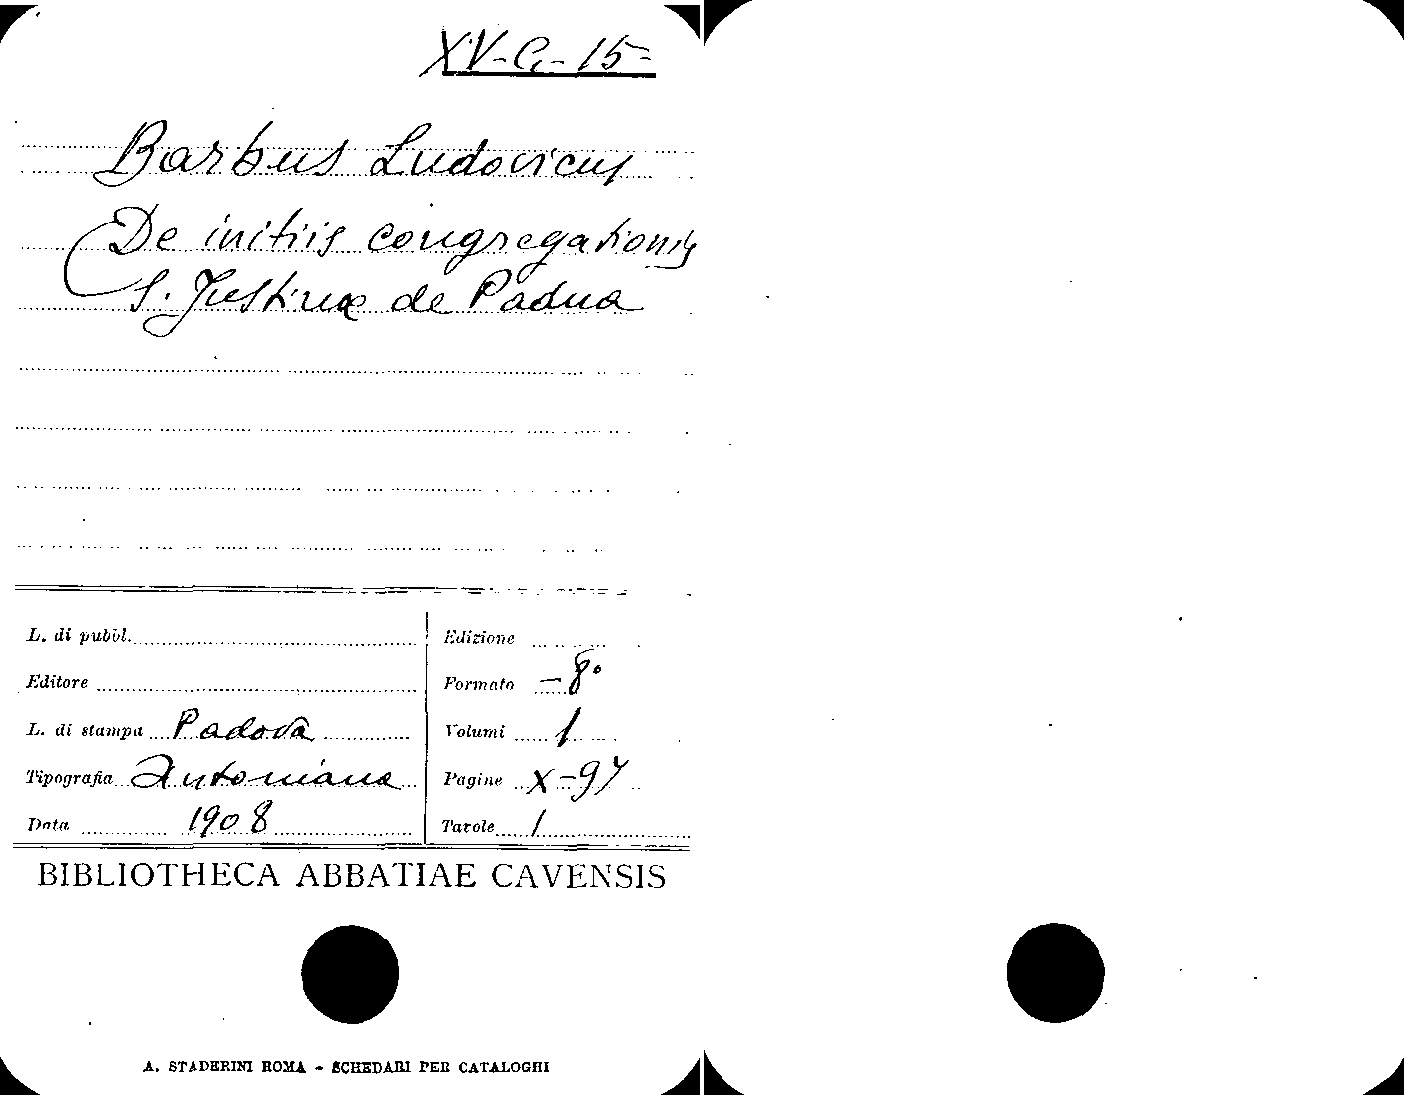 XV-C,-15-
Barbus Ludovicus
De initiis congregationis
S. Justinae de Padua
L. di pubbl.
Edizione
Editore
Formato -8°
L. di stampa Padova
Volumi 1
Tipografia Antoniana
Pagine X-97
Data 1908
Tavole 1
BIBLIOTHECA ABBATIAE CAVENSIS
A. STADERINI ROMA - SCHEDARI PER CATALOGHI